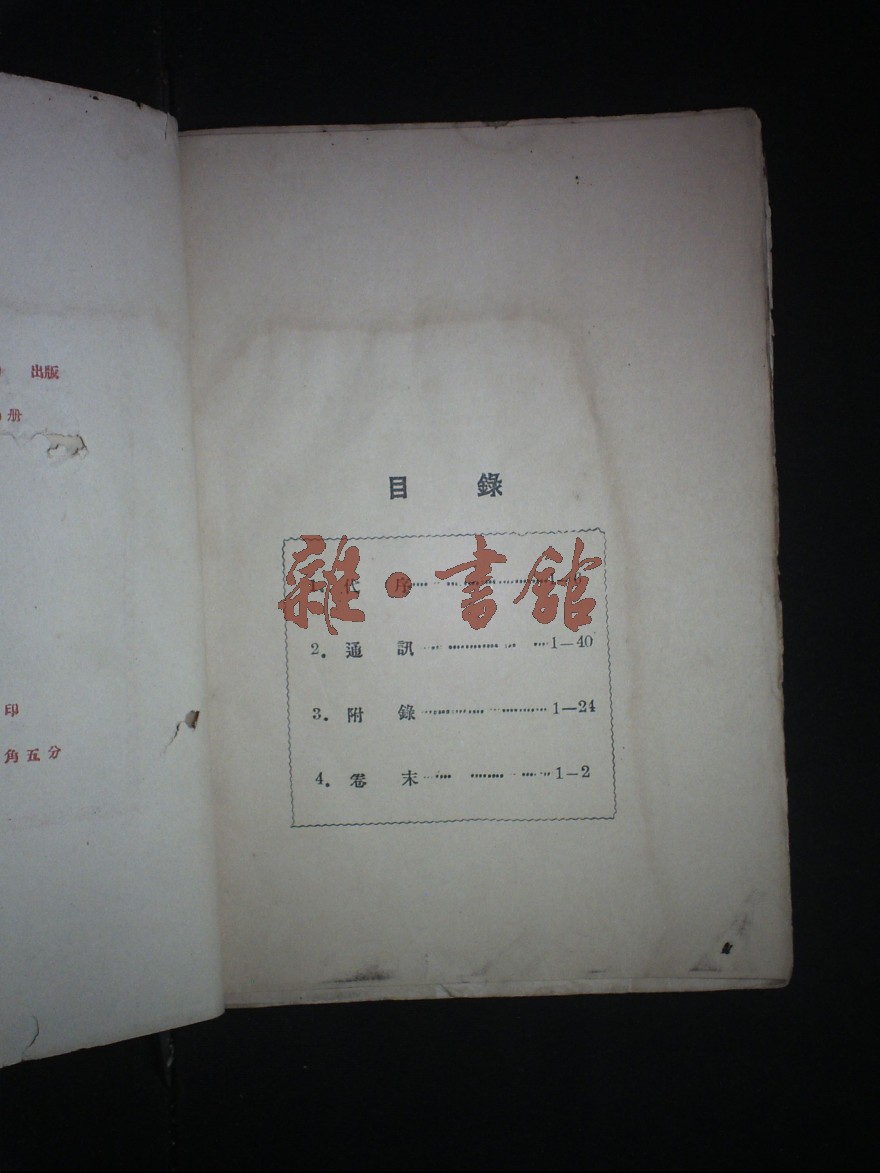 出版
册
印
角五分
目錄
1. 代序……1—6
雜·書館
2. 通訊……1—40
3. 附錄……1—24
4. 卷末……1—2